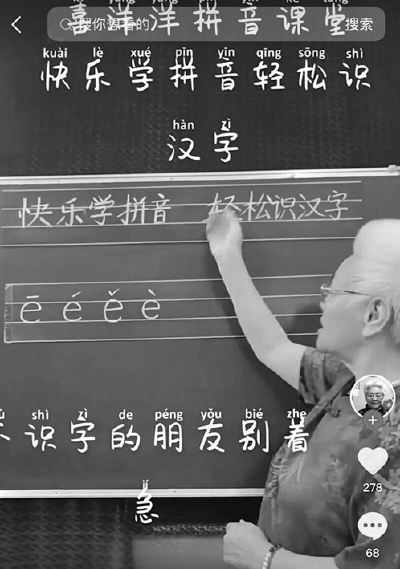 喜洋洋拼音课堂
搜索
kuài lè xué pīn yīn qīng sōng shí
快乐学拼音轻松识
hàn zì
汉字
快乐学拼音 轻松识汉字
ē é ě è
shì zì de péng yǒu bié zhe
识字的朋友别着
jí
急
278
68